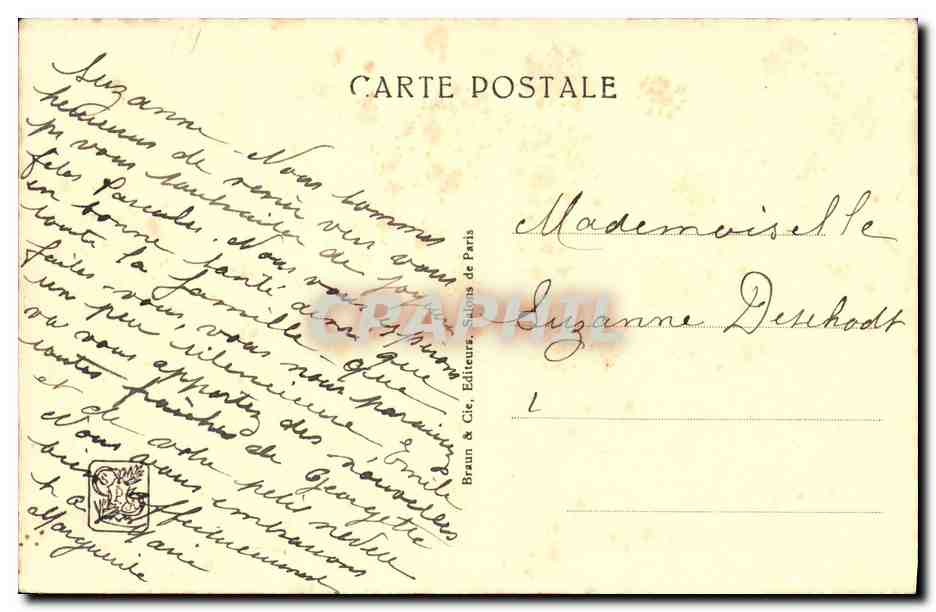 CARTE POSTALE
Suzanne - Nous sommes
heureux de venir vers vous
pr vous souhaiter de joyeuses
fêtes Pascales. Nous vous espérons
en bonne santé ainsi que
toute la famille - Que
faites-vous, vous nous paraissez
un peu silencieuse, Emile
va vous apporter des nouvelles
toutes fraîches de Georgette
et de votre petit neveu
Nous vous embrassons
bien affectueusement
Marie
Marguerite
Braun & Cie, Editeurs. Salons de Paris
Mademoiselle
Suzanne Deschodt
CPAPHIL
SPA